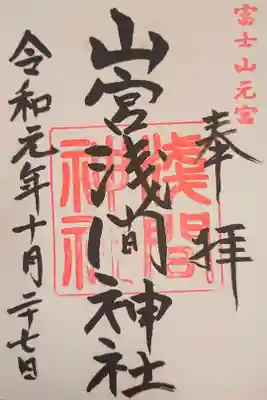 富士山元宮
奉拝
山宮浅間神社
淺間
神社
令和元年十月二十七日